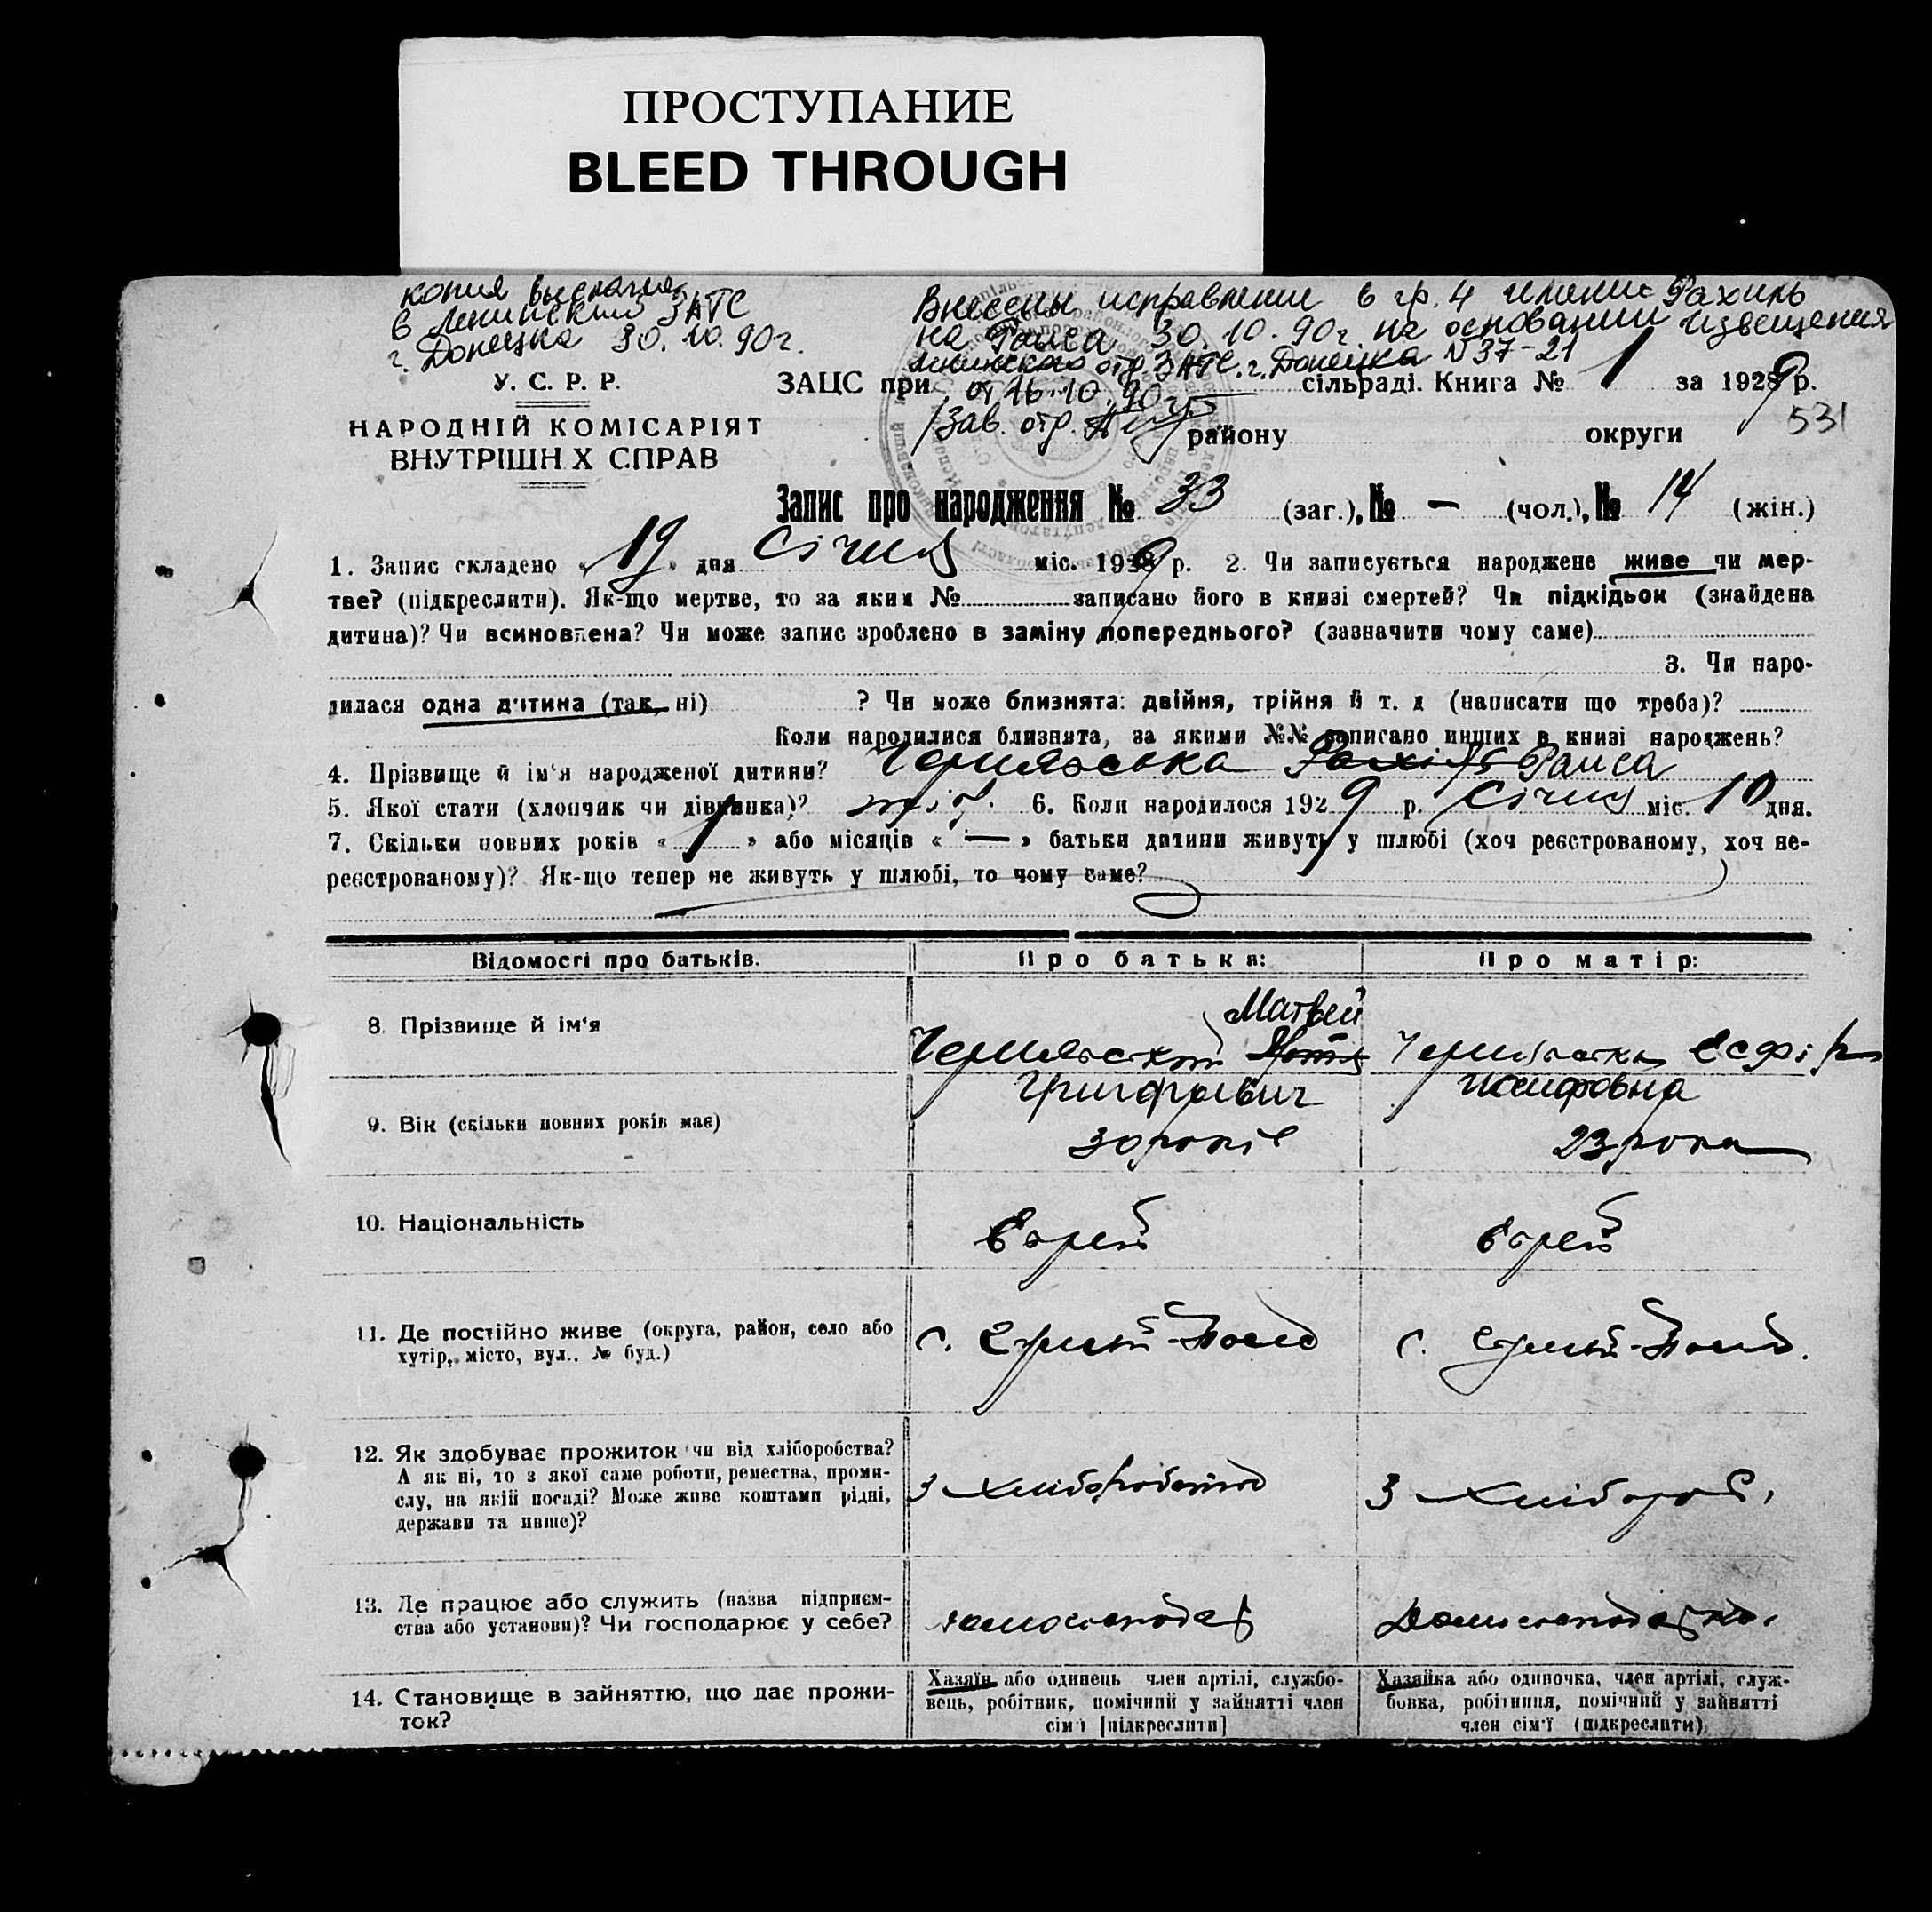 ПРОСТУПАНИЕ
BLEED THROUGH
копия выслана
в Ленинский ЗАГС
г. Донецка 30.10.90г.
Внесены исправление в гр. 4 имени Рахиль
на Раиса 30.10.90г на основании извещения
Ленинского отд ЗАГС. г. Донецка N 37-21
от 16.10.90г
/Зав. отд.
У. С. Р. Р.
НАРОДНІЙ КОМІСАРІЯТ
ВНУТРІШН Х СПРАВ
ЗАЦС при сільраді. Книга № 1 за 1929 р.
531
району округи
Запис про народження № 33 (заг.), № — (чол.), № 14 (жін.)
1. Запис складено « 19 » дня Січня міс. 1929 р. 2. Чи записується народжене живе чи мер-
тве? (підкреслити). Як-що мертве, то за яким № записано його в книзі смертей? Чи підкідьок (знайдена
дитина)? Чи всиновлена? Чи може запис зроблено в заміну попереднього? (зазначити чому саме)
3. Чи наро-
дилася одна дитина (так, ні) ? Чи може близнята: двійня, трійня й т. д (написати що треба)?
Коли народилися близнята, за якими №№ записано инших в книзі народжень?
4. Прізвище й ім'я народженої дитини? Чернявська Рахіль Раиса
5. Якої стати (хлопчик чи дівчинка)? 6. Коли народилося 1929 р. Січня міс. 10 дня.
7. Скільки повних років « 1 » або місяців « — » батьки дитини живуть у шлюбі (хоч реєстрованому, хоч не-
реєстрованому)? Як-що тепер не живуть у шлюбі, то чому саме?
Відомості про батьків. Про батька: Про матір:
Матвей
8. Прізвище й ім'я Чернявский Чернявська Есфір
Григорьевич Иосифовна
9. Вік (скільки повних років має) 30 років 23 рока
10. Національність Еврей Еврей
11. Де постійно живе (округа, район, село або
хутір, місто, вул., № буд.)
с. с.
12. Як здобуває прожиток чи від хліборобства?
А як ні, то з якої саме роботи, ремества, проми-
слу, на якій посаді? Може живе коштами рідні,
держави та инше)?
з Хліборобства З Хлібороб.
13. Де працює або служить (назва підприєм-
ства або установи)? Чи господарює у себе?
Домогосподарка
14. Становище в зайняттю, що дає прожи-
ток?
Хазяїн або одинець член артілі, службо-
вець, робітник, помічний у зайнятті член
сім'ї [підкреслити]
Хазяйка або одиночка, член артілі, служ-
бовка, робітниця, помічний у зайнятті
член сім'ї (підкреслити)